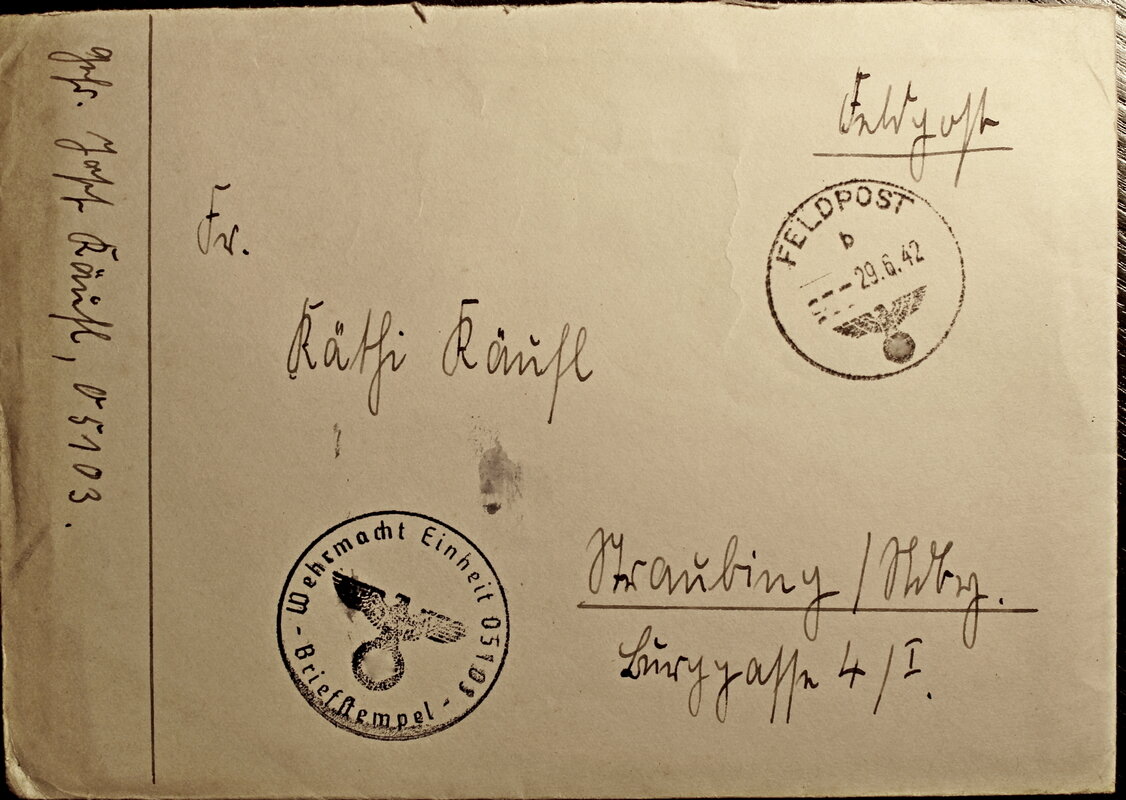 Feldpost
FELDPOST
b
29.6.42
Fr.
Käthi Käufl
Straubing / Ndbg.
Burggasse 4 / I.
Wehrmacht Einheit 05103
- Briefstempel -
Käufl, 05103.